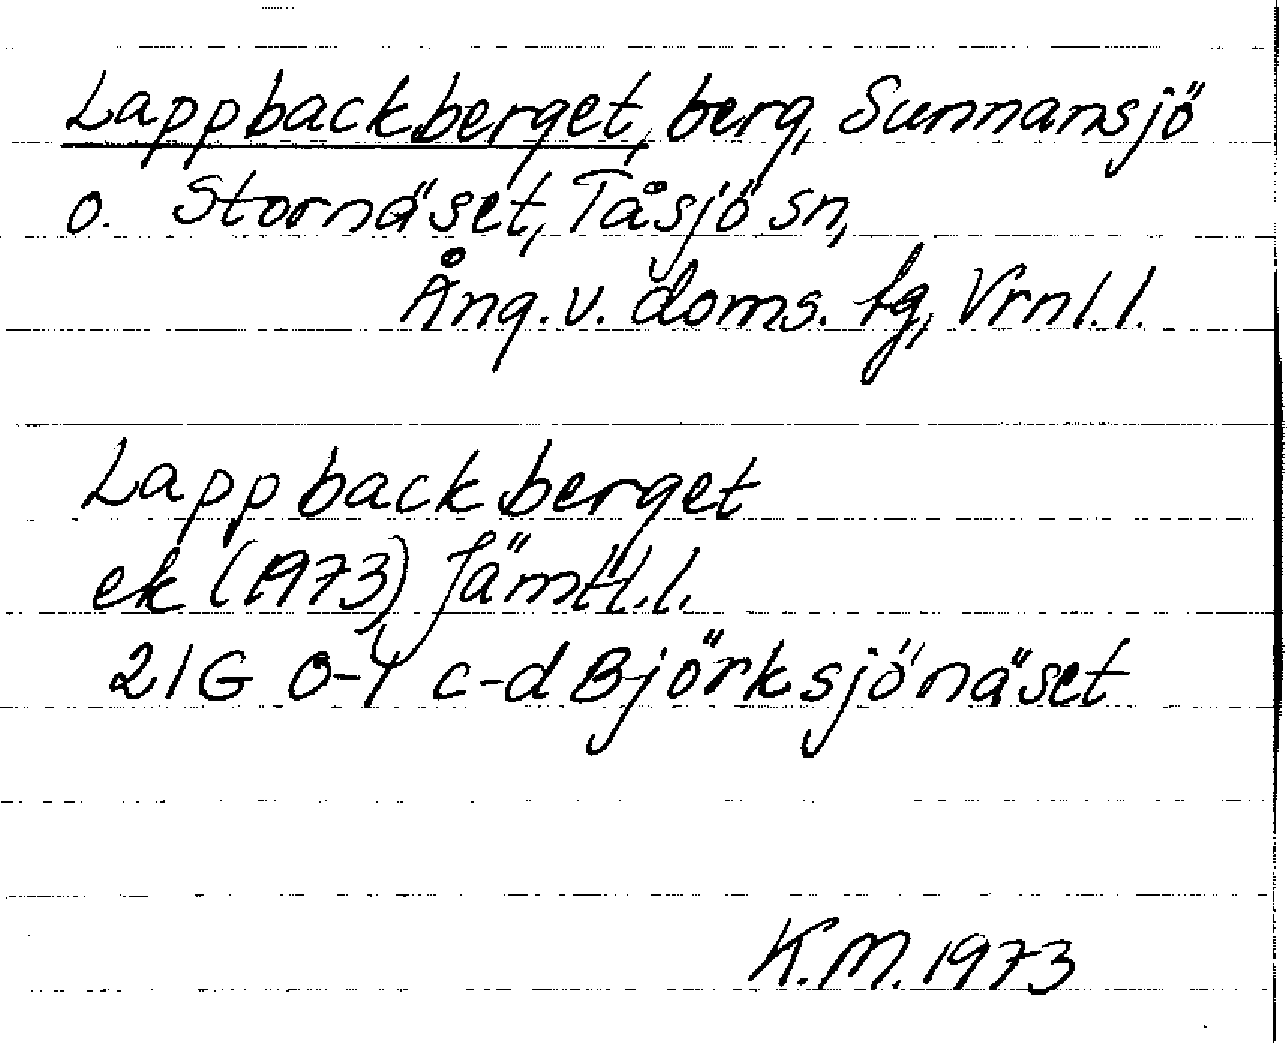 Lappbackberget, berg, Sunnansjö
o. Stornäset, Tåsjö sn,
Ång. v. doms. fg, Vrnl. l.
Lappbackberget
ek (1973) Jämtl. l.
21G 0-1 c-d Björksjönäset
K.M. 1973